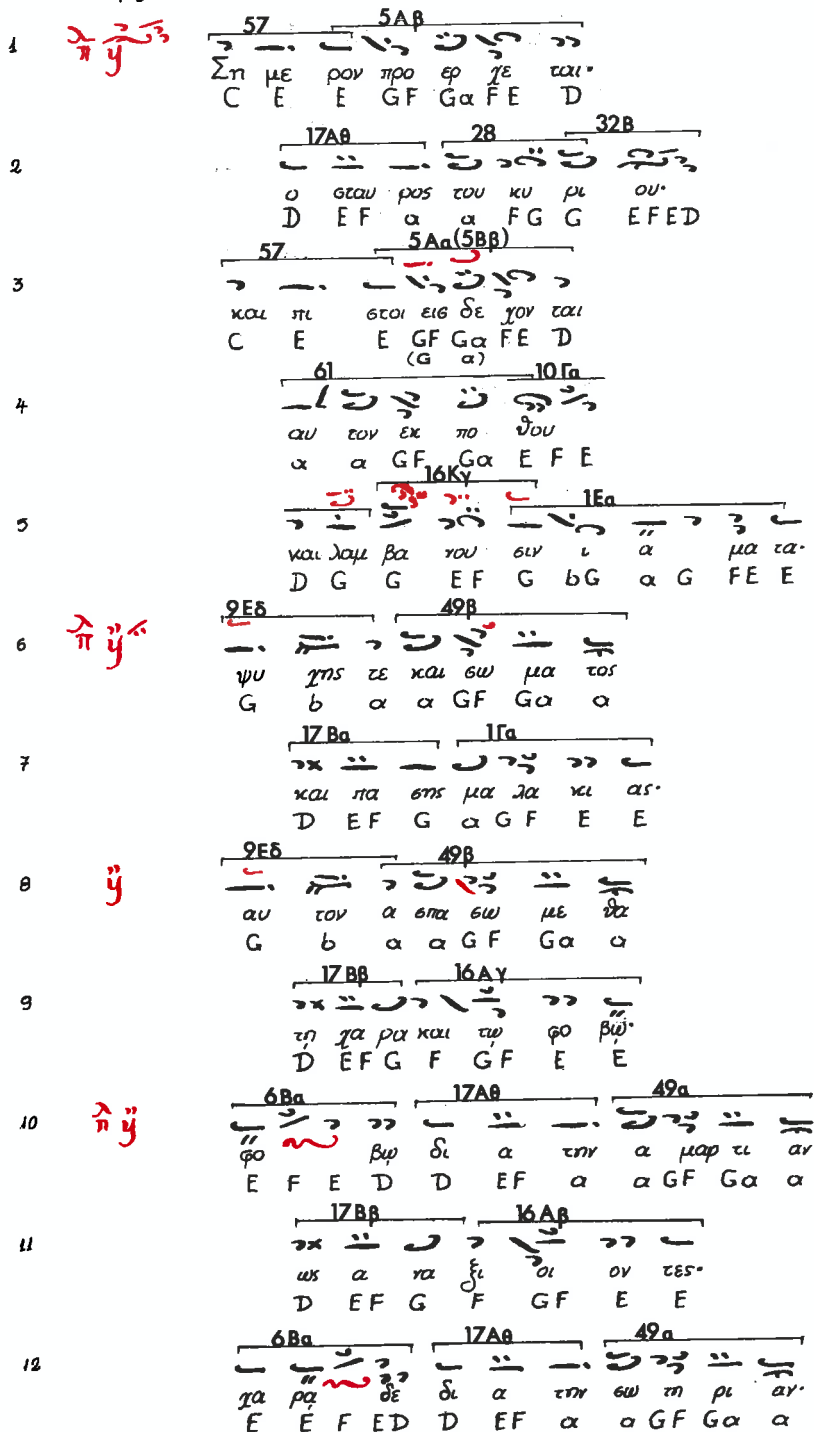 57 5Aβ
1 λ π ÿ
Ση με ρον προ ερ χε ται·
C E E GF Gα FE D
17Aθ 28 32B
2
ο σταυ ρος του κυ ρι ου·
D EF α α FG G EFED
57 5Aα(5Bβ)
3
και πι στοι εισ δε χον ται
C E E GF Gα FE D
(G α)
61 10Γα
4
αυ τον εκ πο θου
α α GF Gα E F E
16Kγ 1Eα
5
και λαμ βα νου σιν ι α μα τα·
D G G EF G bG α G FE E
9Eδ 49β
6 λ π ÿ
ψυ χης τε και σω μα τος
G b α α GF Gα α
17Bα 1Γα
7
και πα σης μα λα κι ας·
D EF G α GF E E
9Eδ 49β
8 ÿ
αυ τον α σπα σω με θα
G b α α GF Gα α
17Bβ 16Aγ
9
τῃ χα ρᾳ και τῳ φο βῳ·
D EF G F GF E E
6Bα 17Aθ 49α
10 λ π ÿ
φο βῳ δι α την α μαρ τι αν
E F E D D EF α α GF Gα α
17Bβ 16Aβ
11
ως α να ξι οι ον τες·
D EF G F GF E E
6Bα 17Aθ 49α
12
χα ρᾳ δε δι α την σω τη ρι αν·
E E F ED D EF α α GF Gα α